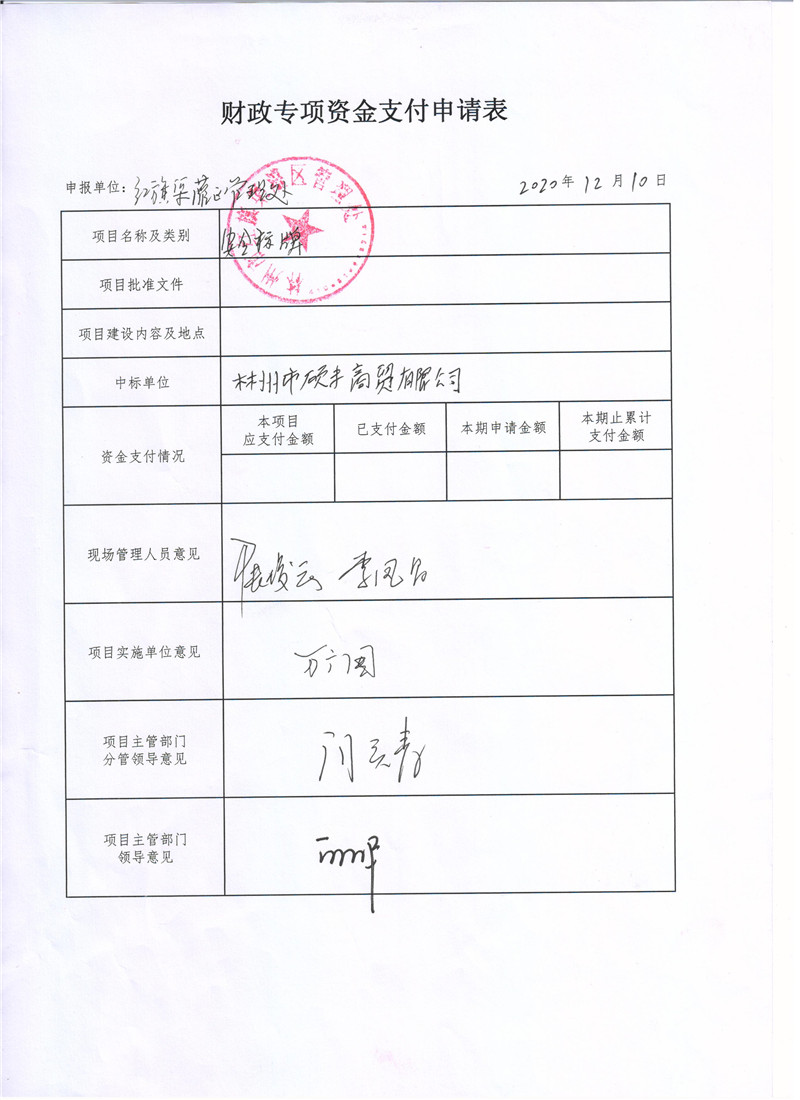 财政专项资金支付申请表
申报单位：红旗渠灌区管理处
2020年12月10日
项目名称及类别
安全标牌
项目批准文件
项目建设内容及地点
中标单位
林州市硕丰商贸有限公司
资金支付情况
本项目
应支付金额
已支付金额
本期申请金额
本期止累计
支付金额
现场管理人员意见
项目实施单位意见
项目主管部门
分管领导意见
项目主管部门
领导意见